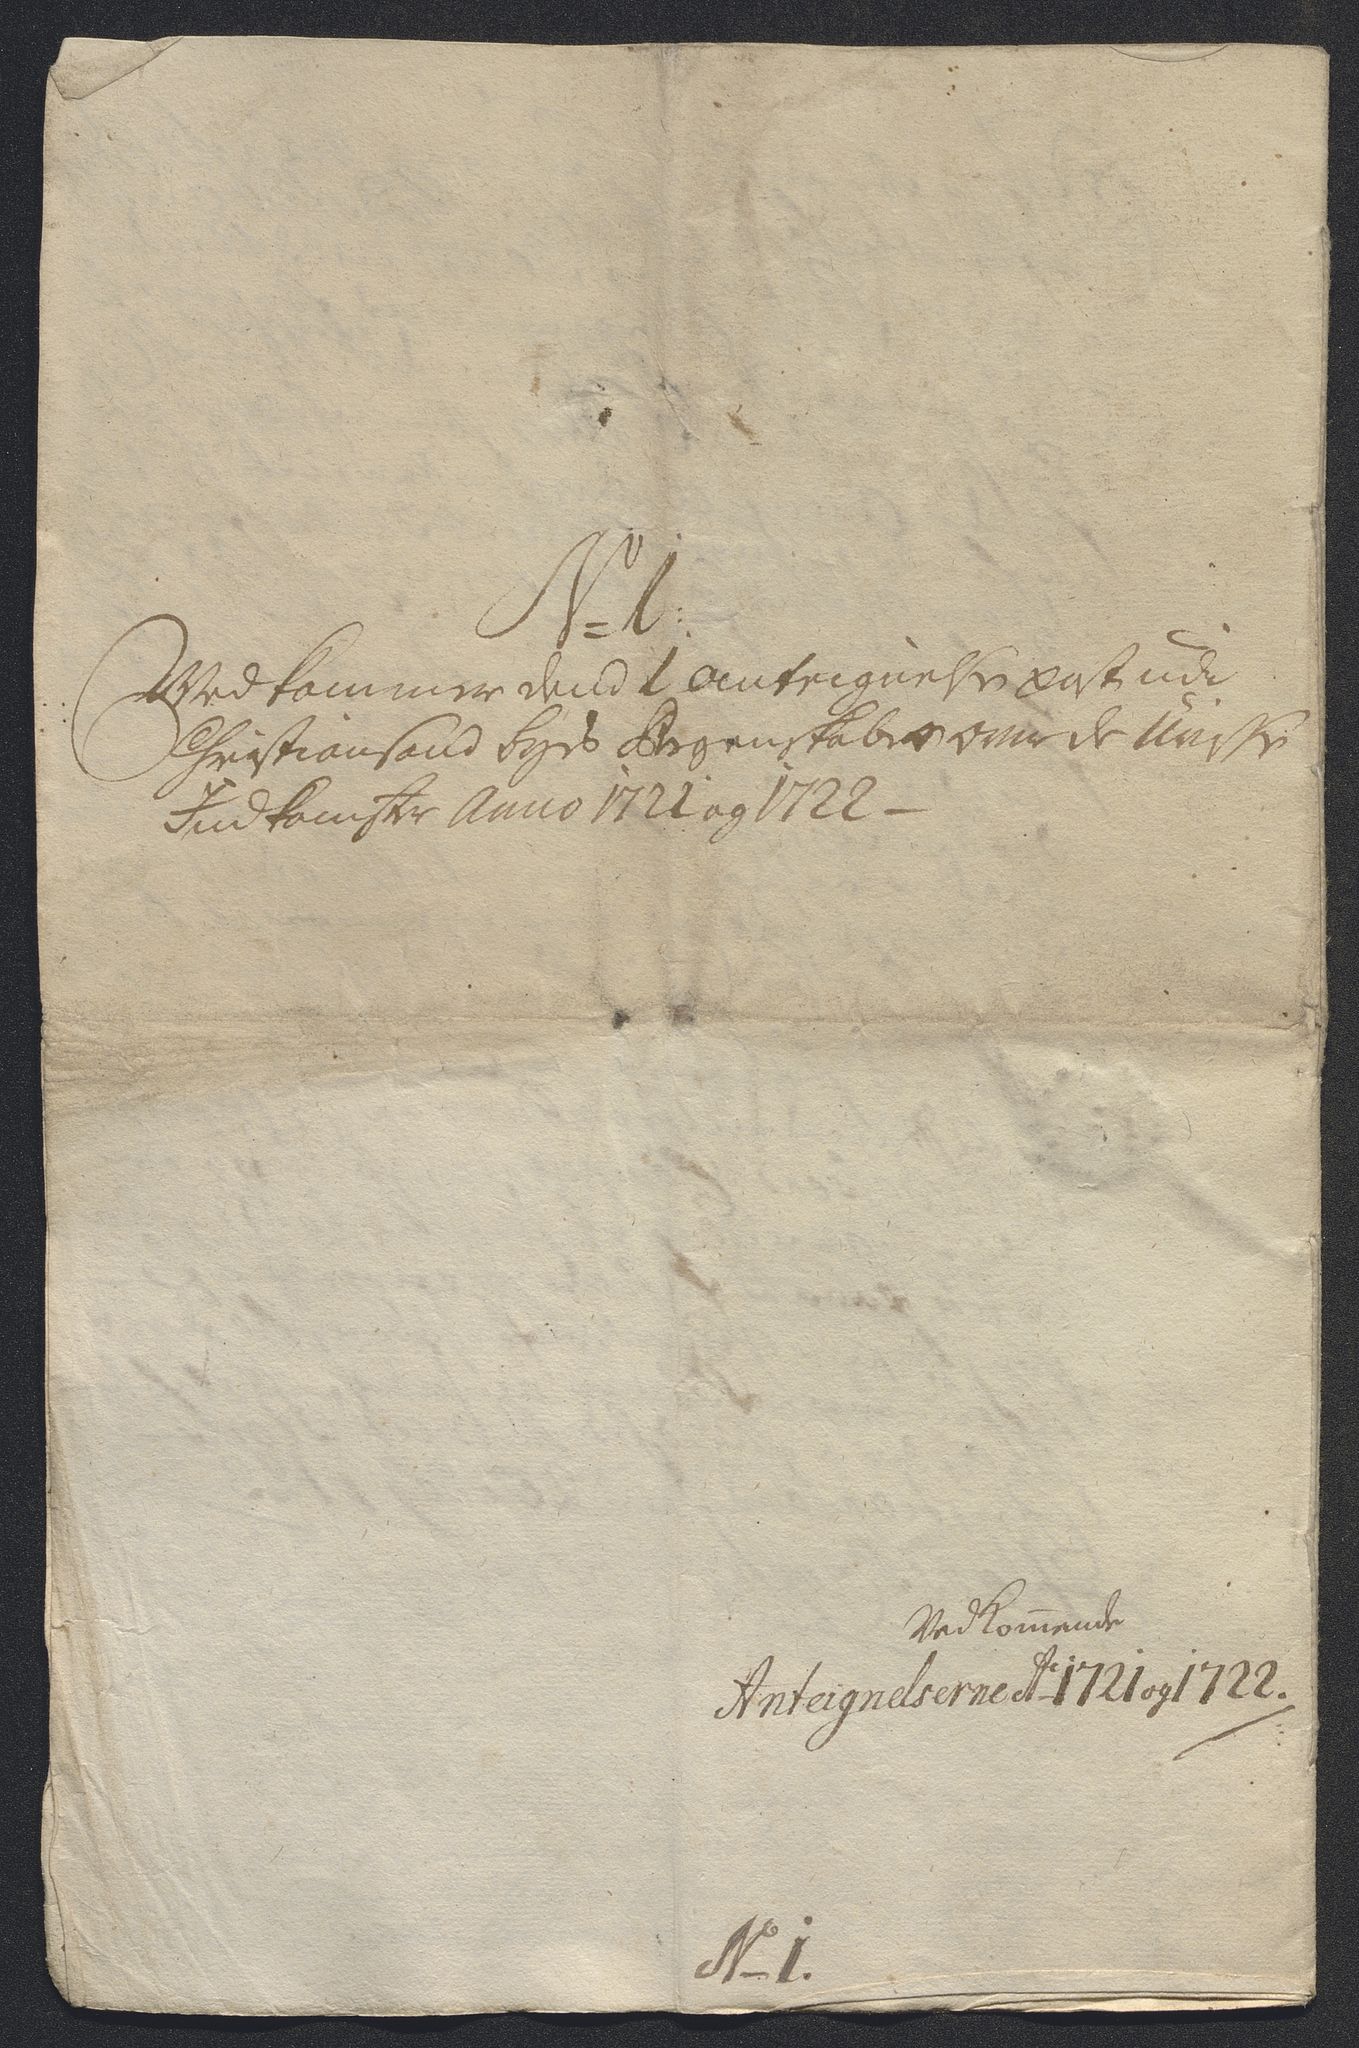 No 1:
Vedkommer dend 1 anteignelse post udi
Christiansand byes Regenskaber over de Uvisse
Indkomster Anno 1721 og 1722 –
Vedkom̅ende
Anteignelserne Ao 1721 og 1722.
No 1.